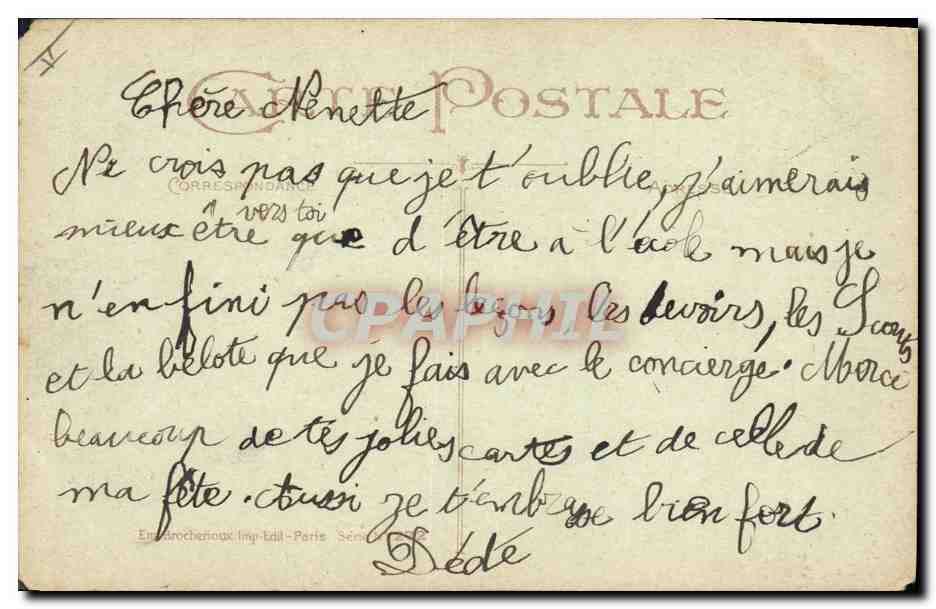 CARTE POSTALE
Chère Nénette
Ne crois pas que je t'oublie, j'aimerais
CORRESPONDANCE ADRESSE
vers toi
mieux être que d'être a l'école mais je
n'en fini pas les leçons, les devoirs, les Scouts
CPAPHIL
et la bélote que je fais avec le concierge. Merci
beaucoup de tes jolies cartes et de celle de
ma fête. Aussi je t'embrasse bien fort.
Imp-Edit-Paris
Dédé